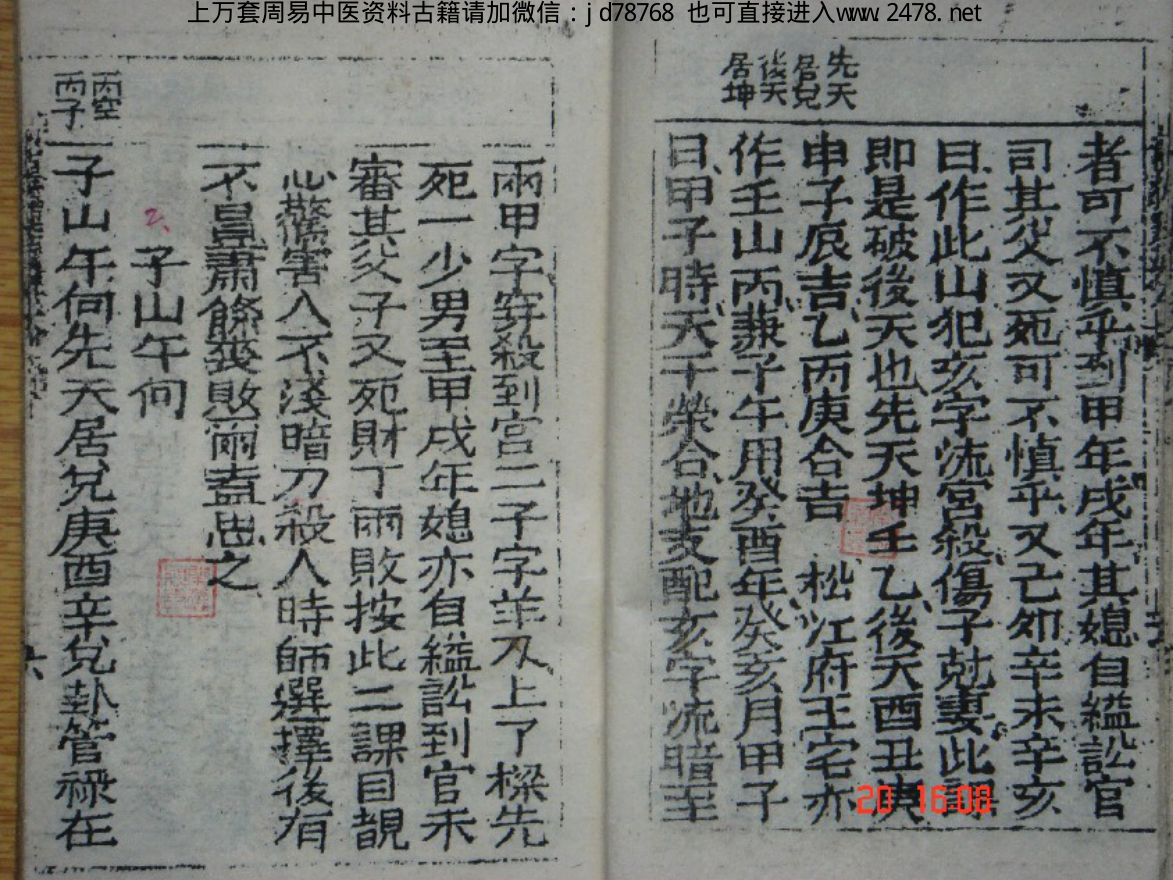 上万套周易中医资料古籍请加微信：jd78768 也可直接进入www.2478.net
先天
居兌
後天
居坤
者可不慎乎到甲年戌年其媳自縊訟官
司其父又死可不慎乎又己卯辛未辛亥
日作此山犯亥字流宮殺傷子尅妻此課
即是破後天也先天坤壬乙後天酉丑庚
申子辰吉乙丙庚合吉 松江府王宅亦
作壬山丙兼子午用癸酉年癸亥月甲子
日甲子時天干榮合地支配亥字流暗至
兩甲字穿殺到宮二子字羊刃上了樑先
死一少男至甲戌年媳亦自縊訟到官未
審其父子又死財丁兩敗按此二課目覩
心驚害人不淺暗刀殺人時師選擇後有
不量肅條喪敗爾盍思之
子山午向
丙空
丙子
子山午向先天居兌庚酉辛兌卦管祿在
六
20 16:08